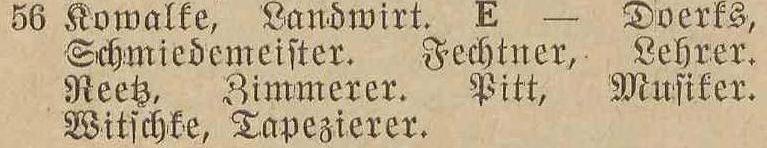 56 Kowalke, Landwirt. E — Doerks,
Schmiedemeiſter. Fechtner, Lehrer.
Reetz, Zimmerer. Pitt, Muſiker.
Witſchke, Tapezierer.